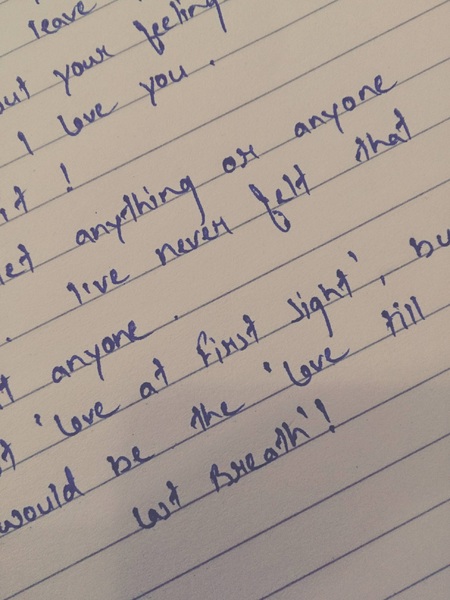 leave
your feeling
I love you.
!
anything or anyone
live never felt that
anyone.
'love at first sight', bu
would be the 'love till
last Breath'!